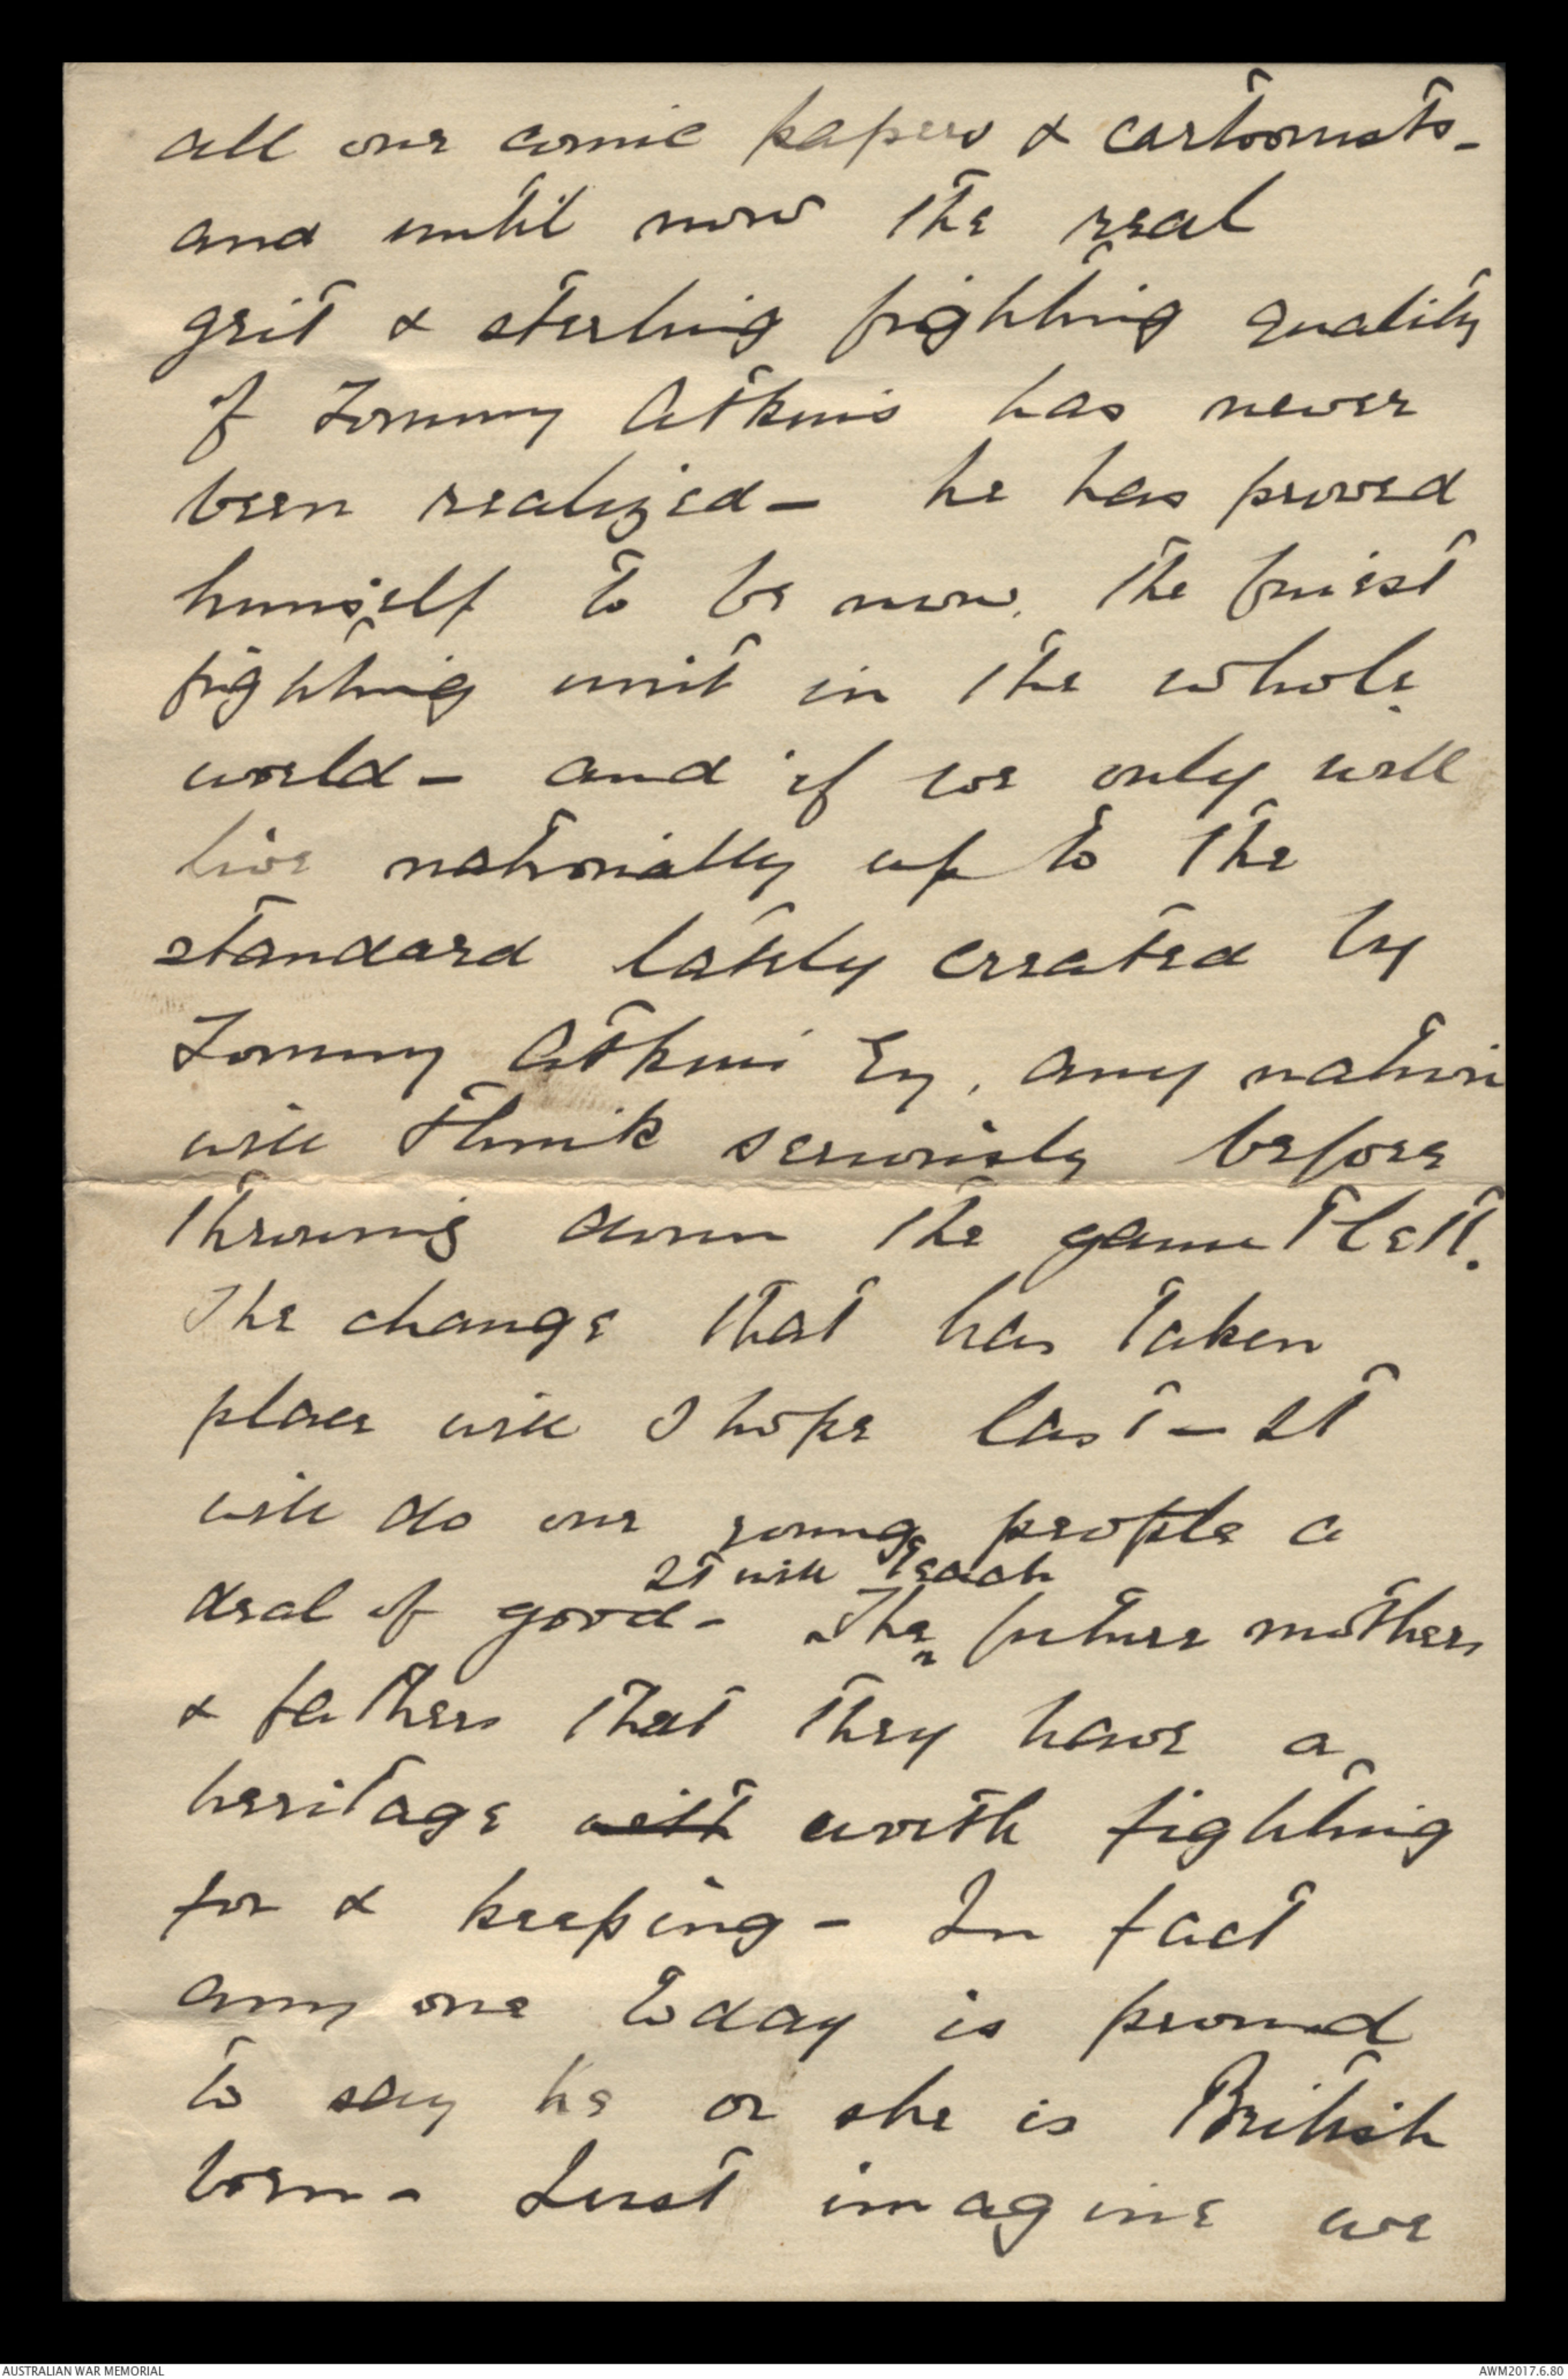 all our comic papers & cartoonists -
and until now the real
grit & sterling fighting quality
of Tommy Atkins has never
been realized - he has proved
himself to be now, the finest
fighting unit in the whole
world - and if we only will
live nationally up to the
standard lately created by
Tommy Atkins Esq, any nation
will think seriously before
throwing down the gauntlett.
The change that has taken
place will I hope last - It
will do our young people a
It will teach
deal of good - The future mothers
& fathers that they have a
heritage with worth fighting
for & keeping - In fact
any one today is proud
to say he or she is British
born - Just imagine we
AUSTRALIAN WAR MEMORIAL
AWM2017.6.80